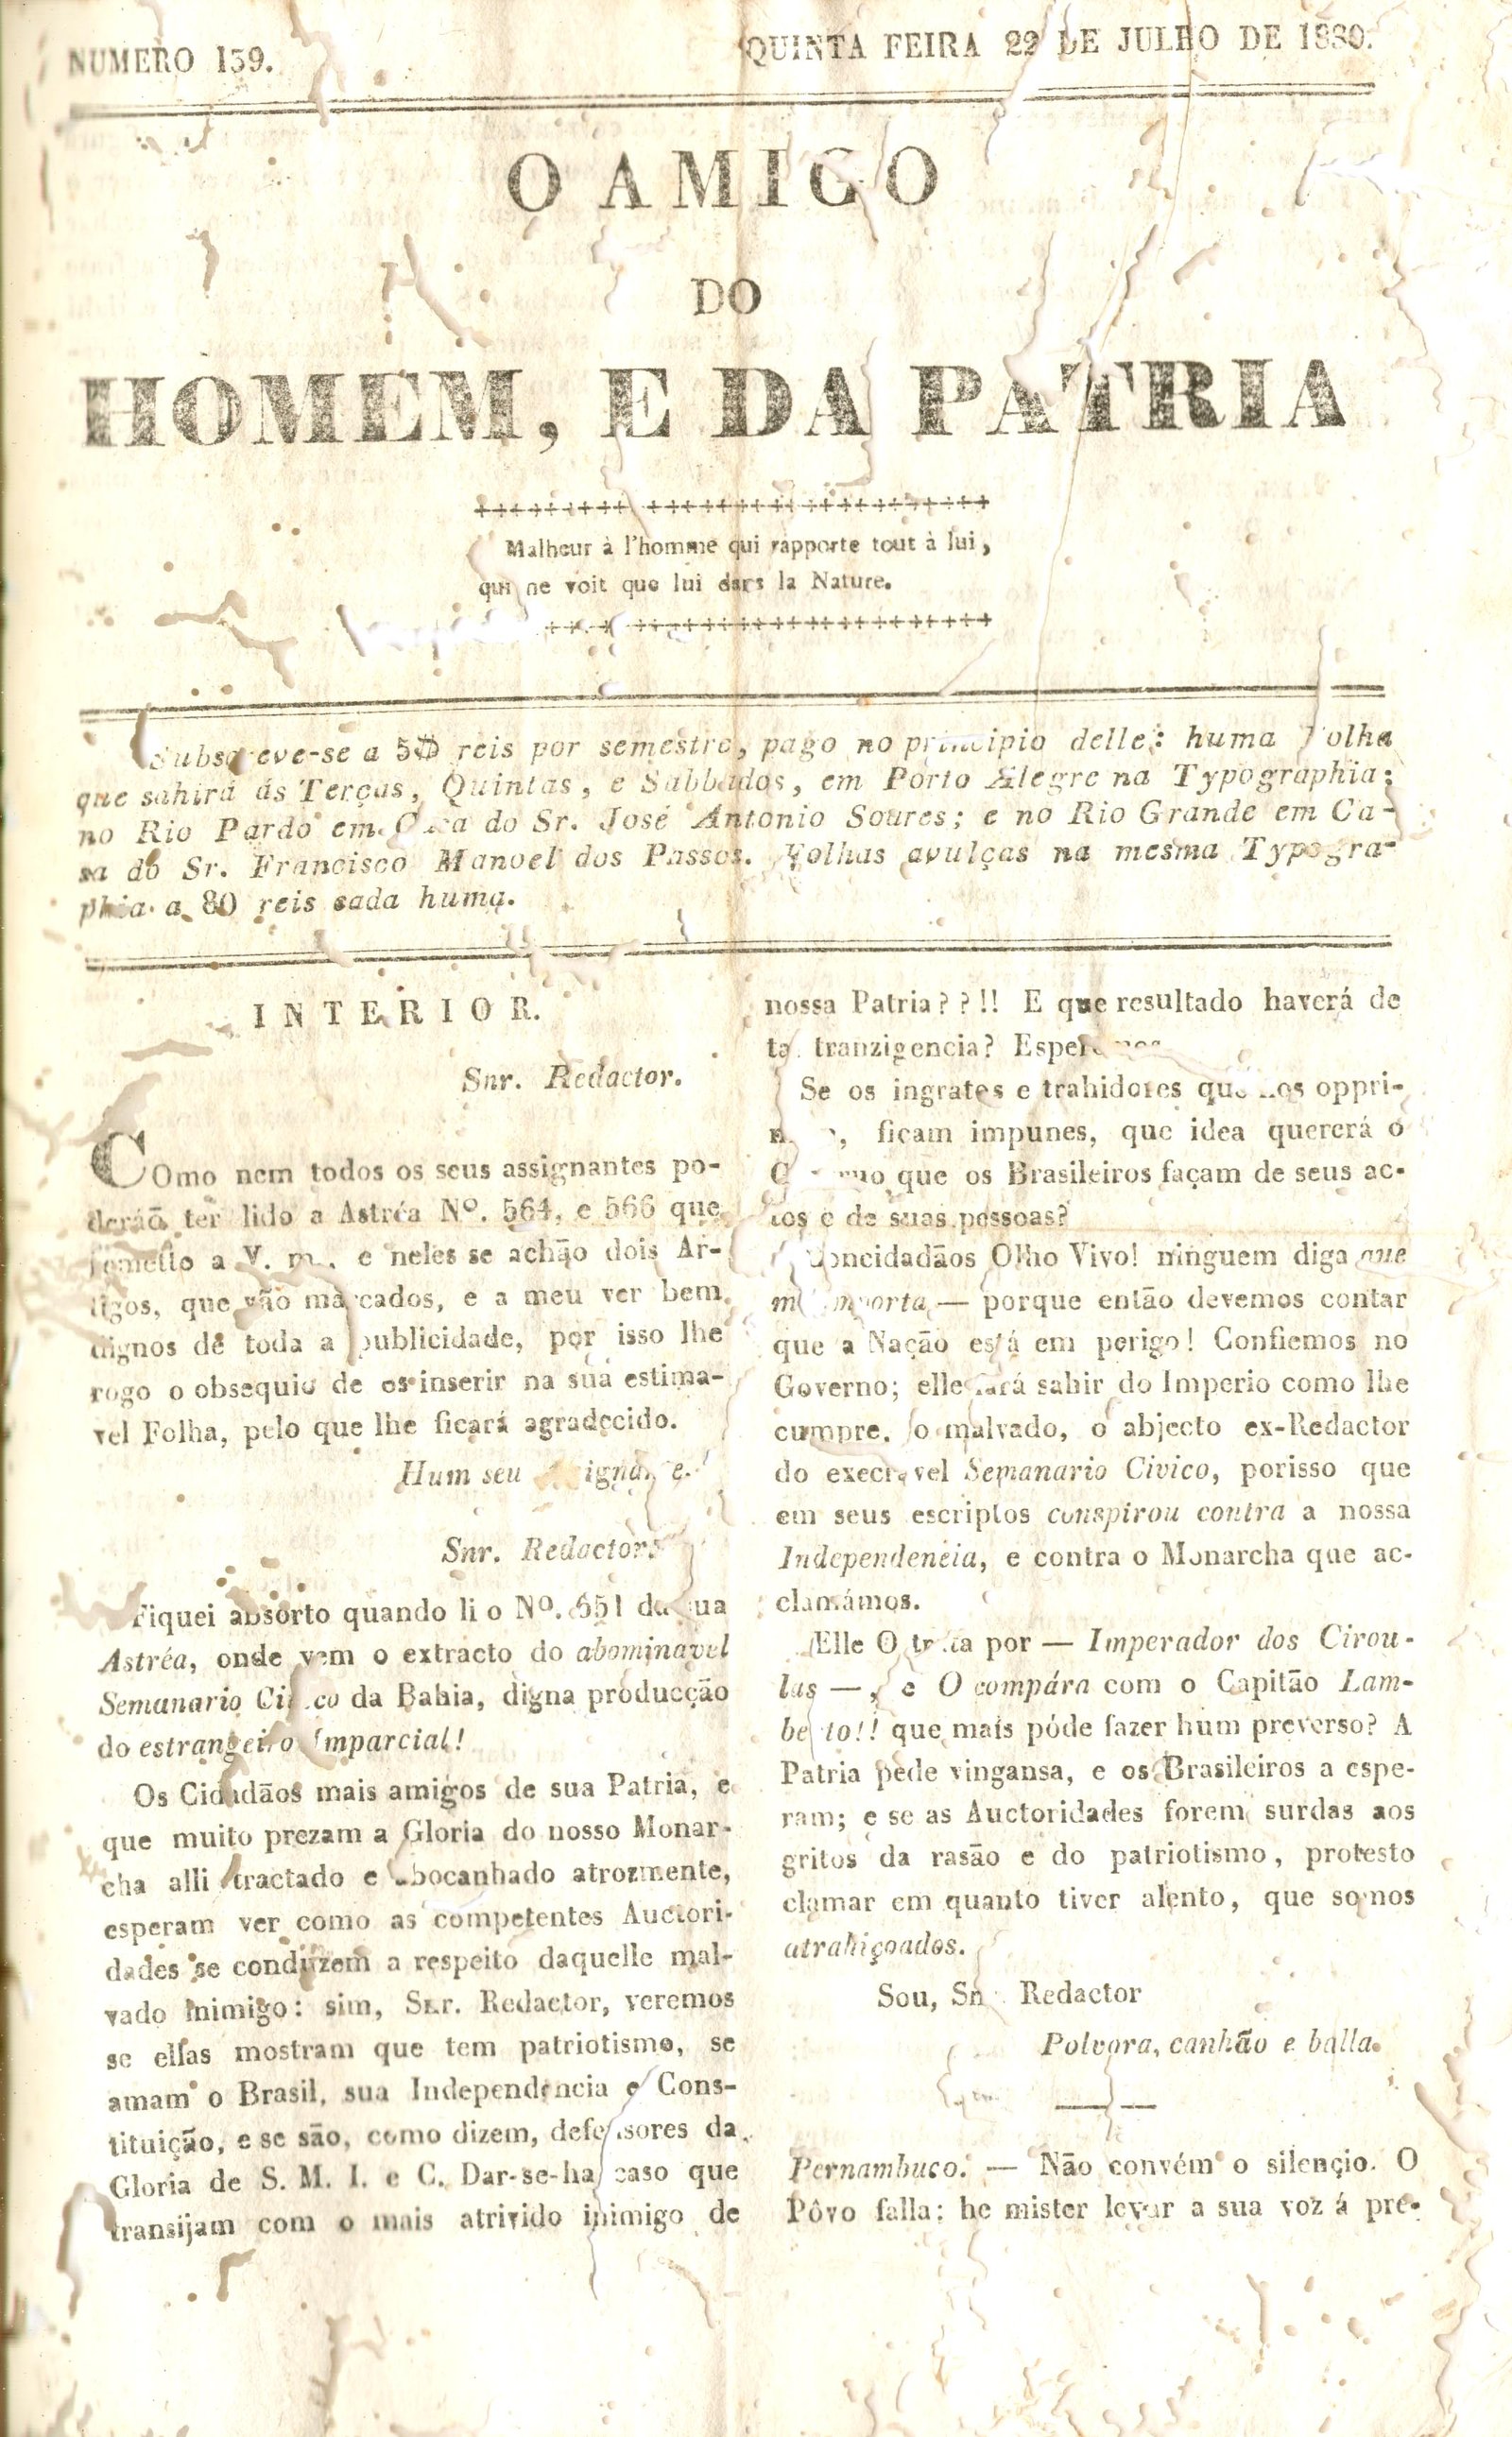 NUMERO 159.
QUINTA FEIRA 22 DE JULHO DE 1830.
O AMIGO
DO
HOMEM, E DA PATRIA
Malheur à l'homme qui rapporte tout à lui,
qui ne voit que lui dans la Nature.
Subscreve-se a 5$ reis por semestre, pago no principio delle: huma Folha
que sahirá ás Terças, Quintas, e Sabbados, em Porto Alegre na Typographia;
no Rio Pardo em Casa do Sr. José Antonio Soares; e no Rio Grande em Ca-
sa do Sr. Francisco Manoel dos Passos. Folhas avulças na mesma Typogra-
phia a 80 reis cada huma.
INTERIOR.
Snr. Redactor.
COmo nem todos os seus assignantes po-
deráõ ter lido a Astréa Nº. 564, e 566 que
remetto a V. m., e neles se achão dois Ar-
tigos, que vão marcados, e a meu ver bem
dignos de toda a publicidade, por isso lhe
rogo o obsequio de os inserir na sua estima-
vel Folha, pelo que lhe ficará agradecido.
Hum seu Assignante.
Snr. Redactor:
Fiquei absorto quando li o Nº. 551 da sua
Astréa, onde vem o extracto do abominavel
Semanario Civico da Bahia, digna producção
do estrangeiro Imparcial!
Os Cidadãos mais amigos de sua Patria, e
que muito prezam a Gloria do nosso Monar-
cha alli tractado e abocanhado atrozmente,
esperam ver como as competentes Auctori-
dades se conduzem a respeito daquelle mal-
vado inimigo: sim, Snr. Redactor, veremos
se ellas mostram que tem patriotismo, se
amam o Brasil, sua Independencia e Cons-
tituição, e se são, como dizem, defensores da
Gloria de S. M. I. e C. Dar-se-ha caso que
transijam com o mais atrivido inimigo de
nossa Patria??!! E que resultado haverá de
tal tranzigencia? Esperemos
Se os ingratos e trahidores que nos oppri-
, ficam impunes, que idea quererá o
Governo que os Brasileiros façam de seus ac-
tos e de suas pessoas?
Concidadãos Olho Vivo! ninguem diga que
m'importa — porque então devemos contar
que a Nação está em perigo! Confiemos no
Governo; elle fará sahir do Imperio como lhe
cumpre, o malvado, o abjecto ex-Redactor
do execravel Semanario Civico, porisso que
em seus escriptos conspirou contra a nossa
Independencia, e contra o Monarcha que ac-
clamámos.
Elle O trata por — Imperador dos Cirou-
las —, e O compára com o Capitão Lam-
berto!! que mais póde fazer hum preverso? A
Patria pede vingansa, e os Brasileiros a espe-
ram; e se as Auctoridades forem surdas aos
gritos da rasão e do patriotismo, protesto
clamar em quanto tiver alento, que somos
atraiçoados.
Sou, Snr. Redactor
Polvora, canhão e balla.
Pernambuco. — Não convém o silençio. O
Pôvo falla; he mister levar a sua voz á pre-